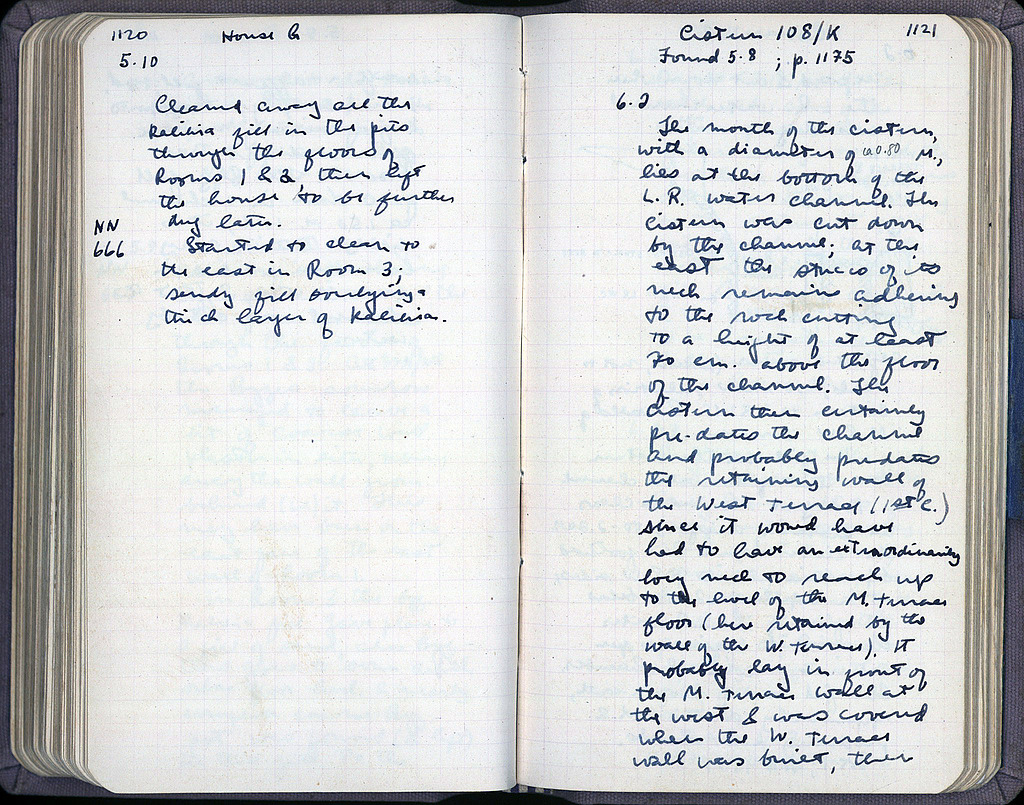 1120
House G
5.10
Cleared away all the
Kalibia fill in the pits
through the floors of
Rooms 1 & 2, then left
the house to be further
dug later.
NN
666
Started to clear to
the east in Room 3;
sandy fill overlying
thick layer of Kalibia.
Cistern 108/K
1121
Found 5.8 ; p. 1175
6.2
The mouth of the cistern,
with a diameter of ca 0.80 M.,
lies at the bottom of the
L.R. water channel. The
cistern was cut down
by the channel; at the
east the stucco of its
neck remains adhering
to the rock cutting
to a height of at least
70 cm. above the floor
of the channel. The
cistern then certainly
pre-dates the channel
and probably predates
the retaining wall of
the West Terrace (1st c.)
since it would have
had to have an extraordinarily
long neck to reach up
to the level of the M. Terrace
floor (here retained by the
wall of the W. Terrace). It
probably lay in front of
the M. Terrace wall at
the west & was covered
when the W. Terrace
wall was built, then